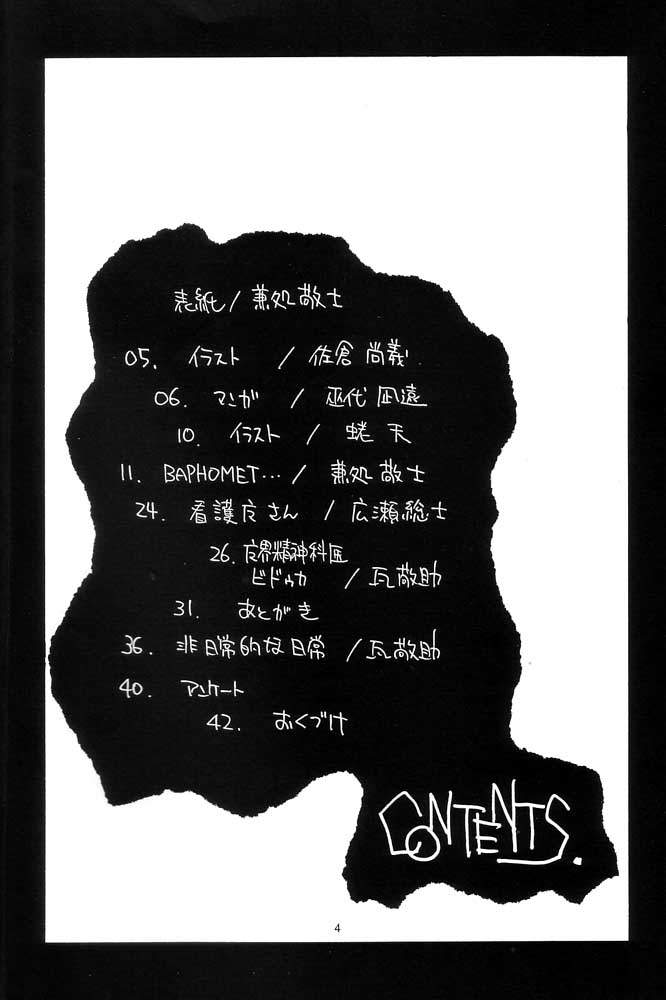 表紙/兼処敬士
05. イラスト / 佐倉尚義.
06. マンガ / 巫代凪遠
10. イラスト / 蜷天
11. BAPHOMET… / 兼処敬士
24. 看護夜さん / 広瀬総士
26. 夜界精神科医
ビドゥカ / 瓦敬助
31. あとがき
36. 非日常的な日常 / 瓦敬助
40. アンケート
42. おくづけ
CONTENTS.
4